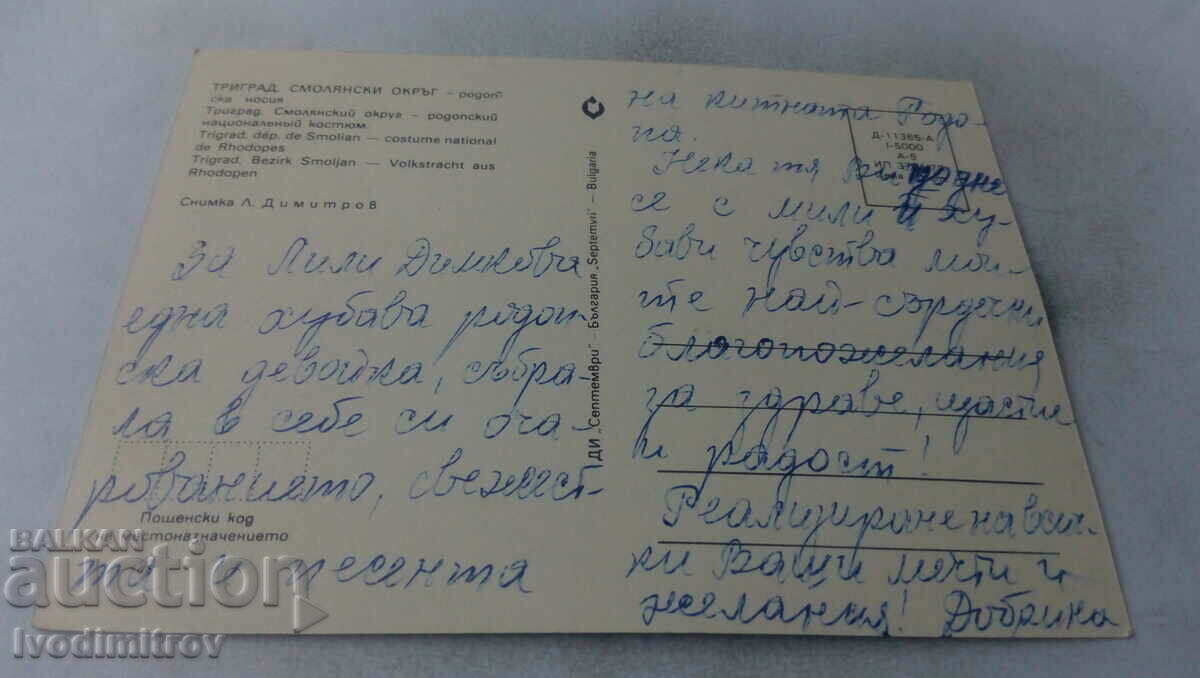 ТРИГРАД. СМОЛЯНСКИ ОКРЪГ — родоп
ска носия
Триград. Смолянский округ — родопский
национальный костюм.
Trigrad, dép. de Smolian — costume national
de Rhodopes
Trigrad, Bezirk Smoljan — Volkstracht aus
Rhodopen
Снимка Л. Димитров
За Лили Димкова
една хубава родоп-
ска девойка, събра-
ла в себе си оча-
рованието, свежест-
та и песента
Пощенски код
на местоназначението
ДИ „Септември" — България „Septemvri" — Bulgaria
на китната Родо-
па.
Нека тя Ви
се с мили и ху-
бави чувства мои-
те най-сърдечни
благопожелания
за здраве, щастие
и радост!
Реализиране на вси-
ки Ваши мечти и
желания! Добрина
Д-11365-А
I-5000
А-5
BALKAN
auction
Ivodimitrov